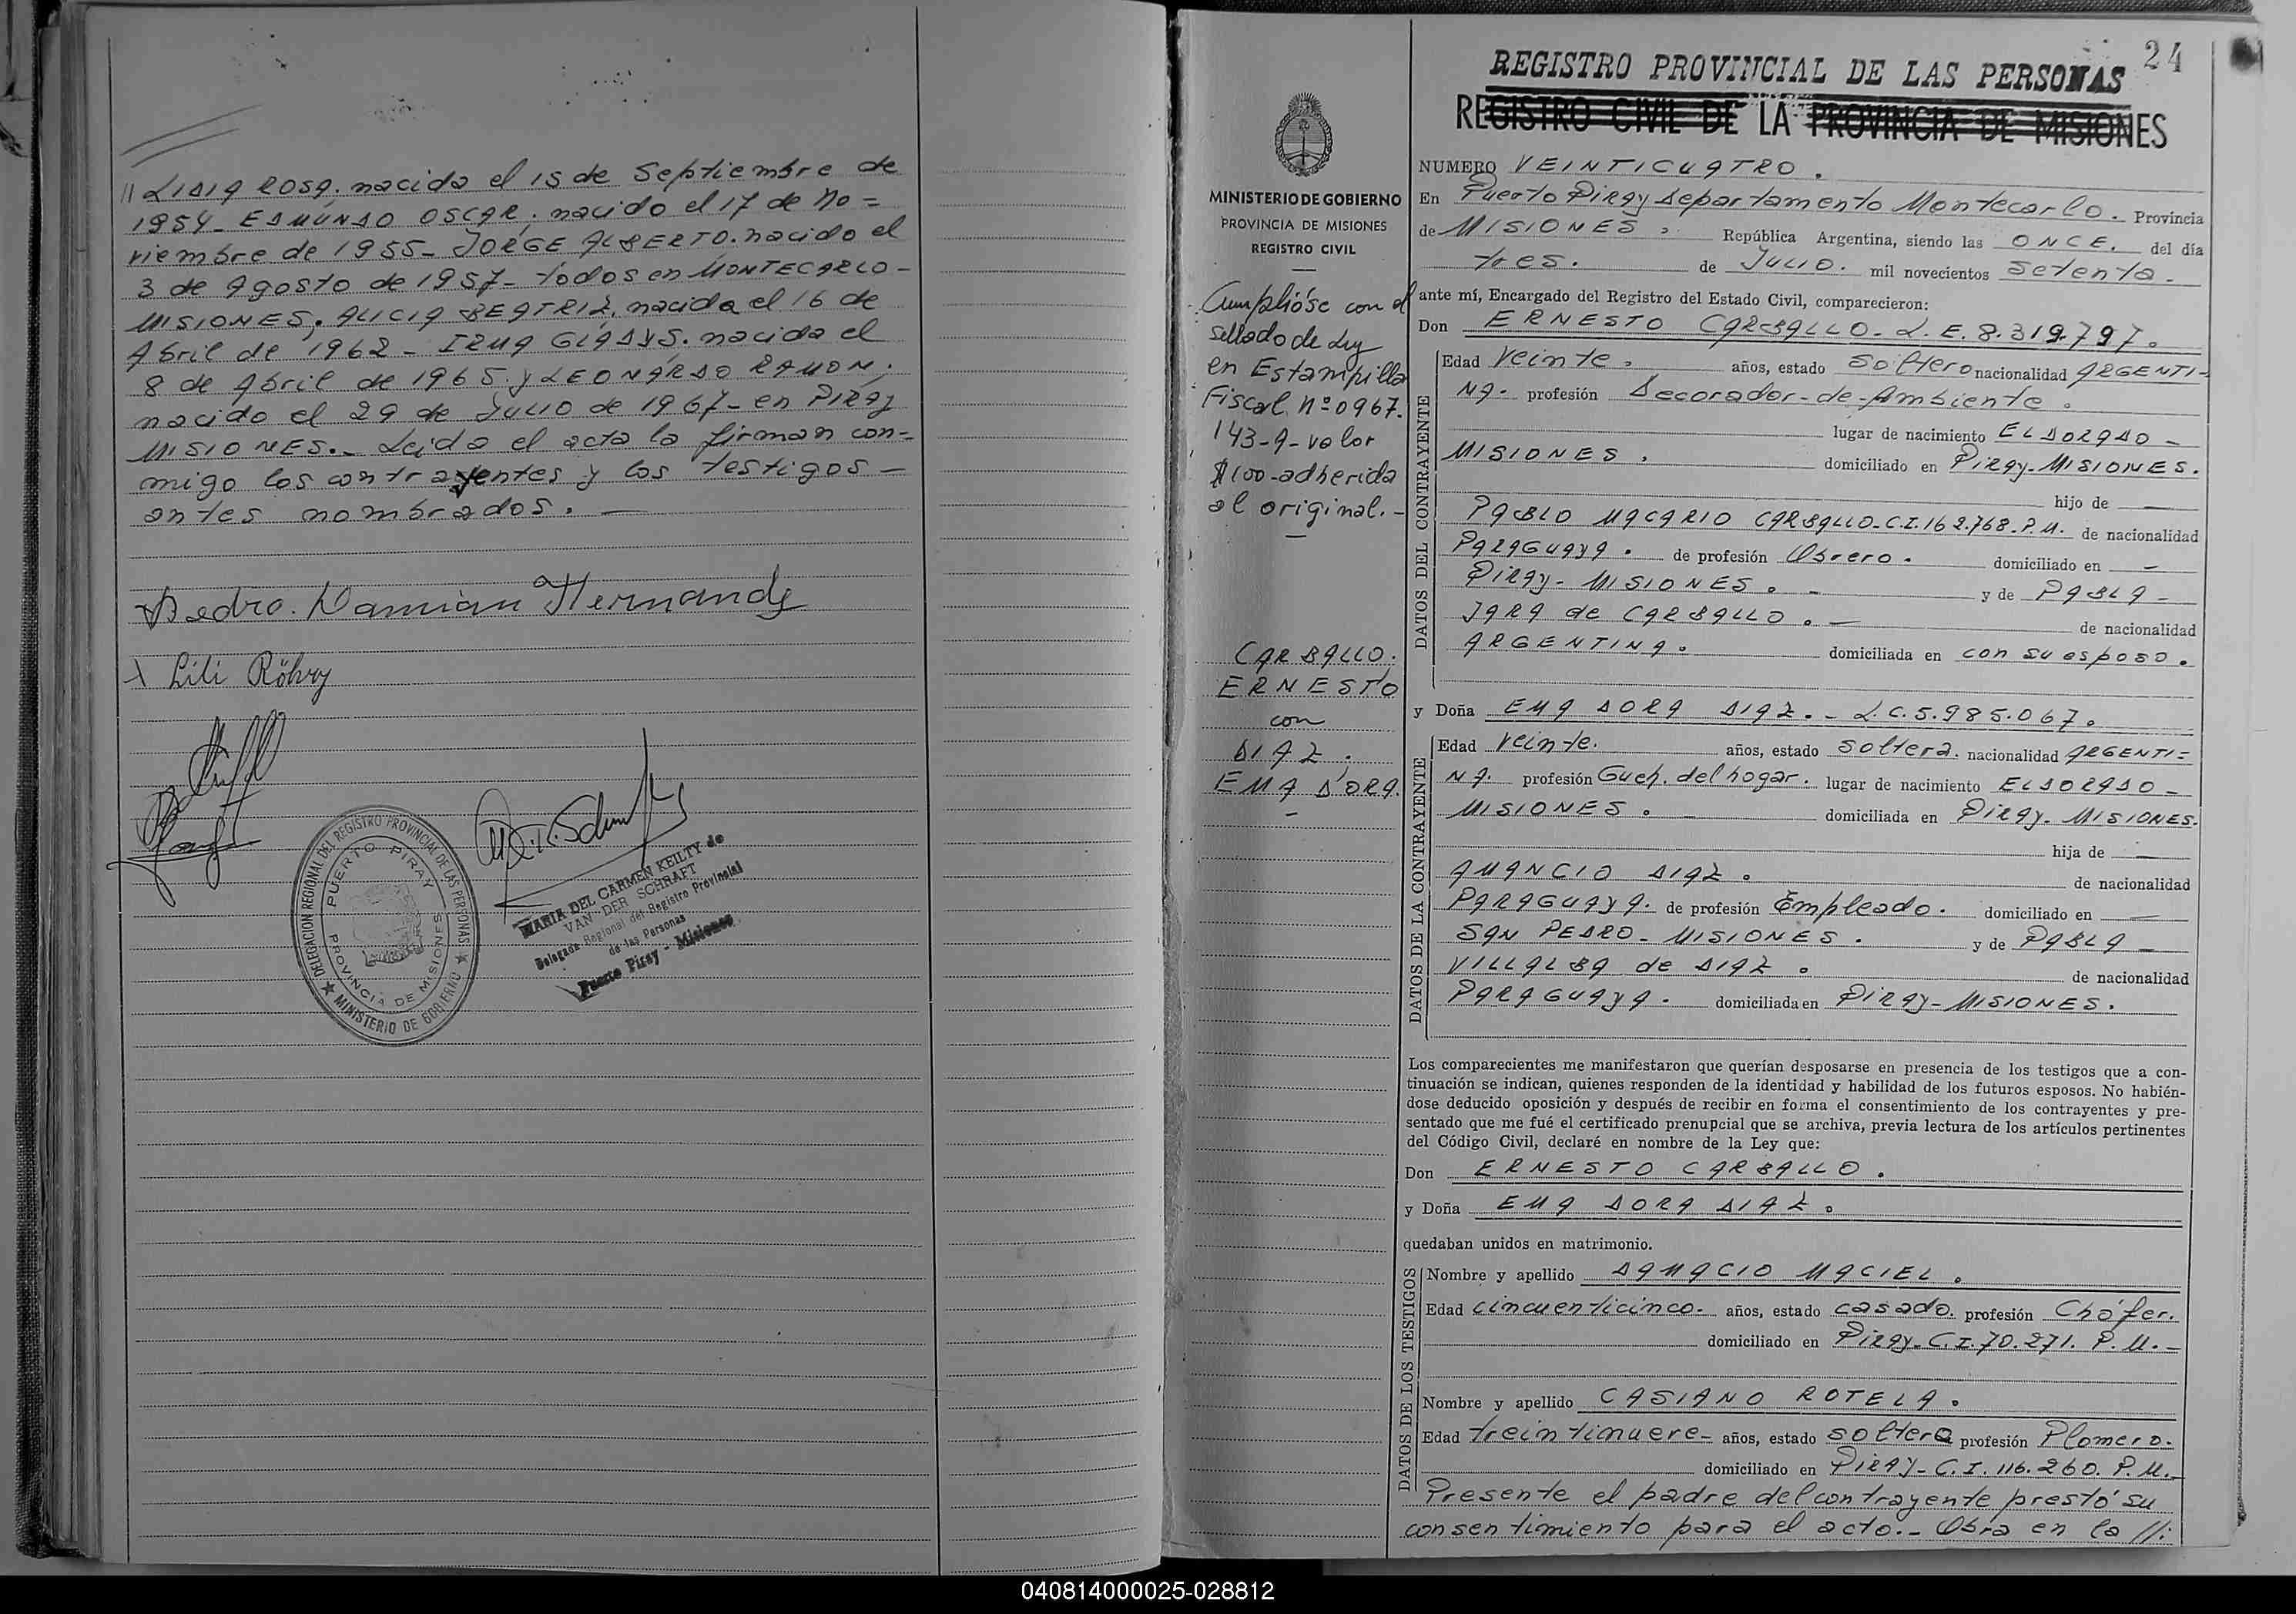 // LIDIA ROSA. nacida el 15 de Septiembre de
1954_ EDMUNDO OSCAR. nacido el 17 de No =
viembre de 1955_ JORGE ALBERTO. nacido el
3 de Agosto de 1957_ todos en MONTECARLO -
MISIONES, ALICIA BEATRIZ, nacida el 16 de
Abril de 1962 - IRMA GLADYS. nacida el
8 de Abril de 1965 y LEONARDO RAMON.
nacido el 29 de Julio de 1967_ en PIRAY
MISIONES._ Leida el acta la firman con-
migo los contrayentes y los testigos -
antes nombrados. —
Pedro. Damian Hernande
Lili Röhry
DELEGACION REGIONAL DEL REGISTRO PROVINCIAL DE LAS PERSONAS
★ MINISTERIO DE GOBIERNO ★
PUERTO PIRAY
PROVINCIA DE MISIONES
MARIA DEL CARMEN KEILTY de
VAN DER SCHRAFT
Delegada Regional del Registro Provincial
de las Personas
Puerto Piray - Misiones
MINISTERIO DE GOBIERNO
PROVINCIA DE MISIONES
REGISTRO CIVIL
Cumplióse con el
sellado de Ley
en Estampilla
Fiscal Nº 0967.
143-A-valor
$100-adherida
al original. -
CARBALLO.
ERNESTO
con
DIAZ.
EMA DORA.
24
REGISTRO PROVINCIAL DE LAS PERSONAS
REGISTRO CIVIL DE LA PROVINCIA DE MISIONES
NUMERO VEINTICUATRO.
En Puerto Piray Departamento Montecarlo. Provincia
de MISIONES, República Argentina, siendo las ONCE. del día
tres. de JULIO. mil novecientos setenta -
ante mí, Encargado del Registro del Estado Civil, comparecieron:
Don ERNESTO CARBALLO - L.E. 8.319.797.
DATOS DEL CONTRAYENTE
Edad veinte, años, estado soltero nacionalidad ARGENTI-
NA- profesión Decorador-de-Ambiente.
lugar de nacimiento ELDORADO -
MISIONES, domiciliado en Piray-MISIONES.
hijo de —
PABLO MACARIO CARBALLO-C.I.162.768.P.M. de nacionalidad
PARAGUAYA. de profesión Obrero. domiciliado en —
Piray- MISIONES. - y de PABLA -
JARA de CARBALLO. - de nacionalidad
ARGENTINA. domiciliada en con su esposo.
y Doña EMA DORA DIAZ. - L.C. 5.985.067.
DATOS DE LA CONTRAYENTE
Edad veinte. años, estado soltera. nacionalidad ARGENTI=
NA. profesión Queh. del hogar. lugar de nacimiento ELDORADO -
MISIONES. - domiciliada en Piray- MISIONES.
hija de —
AMANCIO DIAZ. de nacionalidad
PARAGUAYA. de profesión Empleado. domiciliado en —
SAN PEDRO- MISIONES. y de PABLA —
VILLALBA de DIAZ. de nacionalidad
PARAGUAYA. domiciliada en Piray- MISIONES.
Los comparecientes me manifestaron que querían desposarse en presencia de los testigos que a con-
tinuación se indican, quienes responden de la identidad y habilidad de los futuros esposos. No habién-
dose deducido oposición y después de recibir en forma el consentimiento de los contrayentes y pre-
sentado que me fué el certificado prenupcial que se archiva, previa lectura de los artículos pertinentes
del Código Civil, declaré en nombre de la Ley que:
Don ERNESTO CARBALLO.
y Doña EMA DORA DIAZ.
quedaban unidos en matrimonio.
DATOS DE LOS TESTIGOS
Nombre y apellido DAMACIO MACIEL.
Edad cincuenticinco. años, estado casado. profesión Chófer.
domiciliado en Piray- C.I. 70.271. P.M. -
Nombre y apellido CASIANO ROTELA.
Edad treintinueve- años, estado soltero profesión Plomero.
domiciliado en Piray- C.I. 116.260. P.M. -
Presente el padre del contrayente prestó su
consentimiento para el acto._ Obra en la //:
040814000025-028812